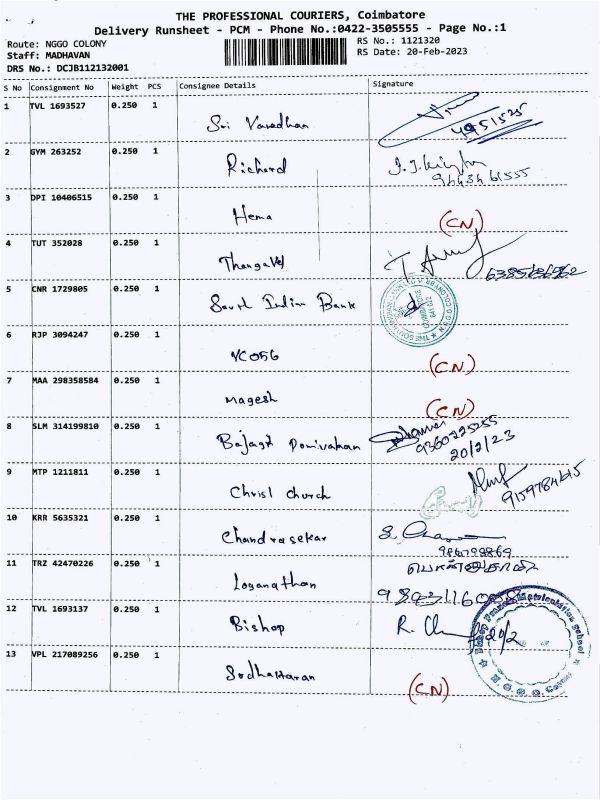 THE PROFESSIONAL COURIERS, Coimbatore
Delivery Runsheet - PCM - Phone No.:0422-3505555 - Page No.:1
Route: NGGO COLONY
RS No.: 1121320
Staff: MADHAVAN
RS Date: 20-Feb-2023
DRS No.: DCJB112132001
S No Consignment No Weight PCS Consignee Details Signature
1 TVL 1693527 0.250 1
Sri Varadhan
2 GYM 263252 0.250 1
Richard
3 DPI 10406515 0.250 1
Hema (CN)
4 TUT 352028 0.250 1
Thangavel
5 CNR 1729805 0.250 1
South Indian Bank
6 RJP 3094247 0.250 1
VC056 (CN)
7 MAA 298358584 0.250 1
Magesh (CN)
8 SLM 314199810 0.250 1
9360225255
20/2/23
9 MTP 1211811 0.250 1
Christ church
10 KRR 5635321 0.250 1
Chandrasekar
11 TRZ 42470226 0.250 1
Loganathan
12 TVL 1693137 0.250 1
Bishop 20/2
13 VPL 217089256 0.250 1
(CN)